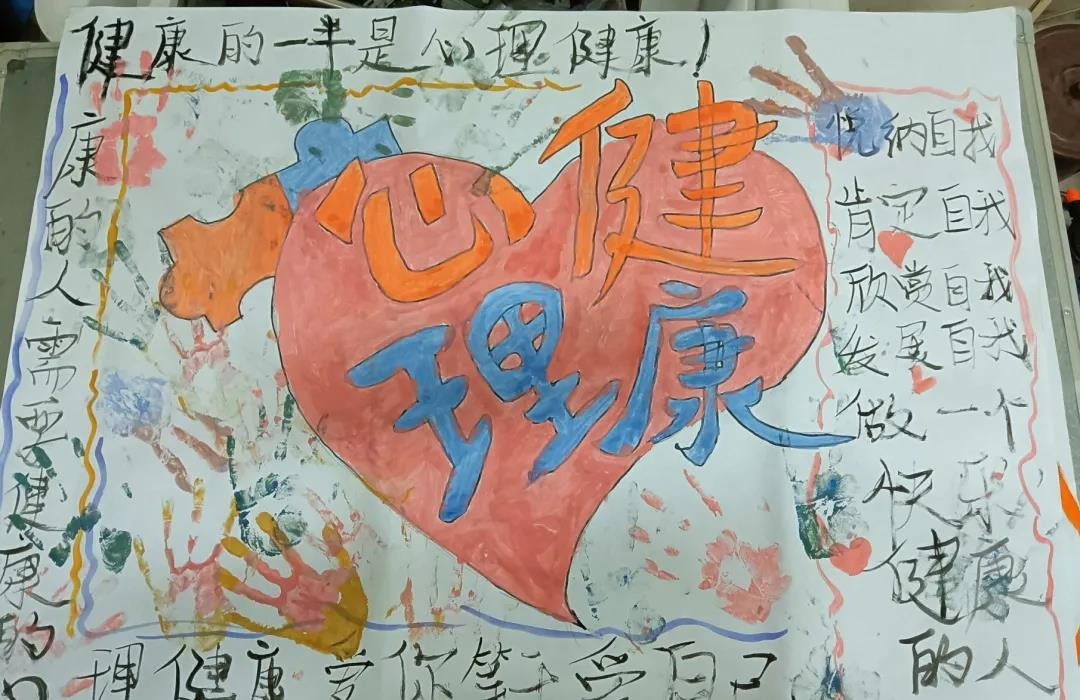 健康的一半是心理健康!
心健
理康
康的人需要健康的
悦纳自我
肯定自我
欣赏自我
发展自我
做一个
快乐
健康
的人
理健康 爱你等于爱自己